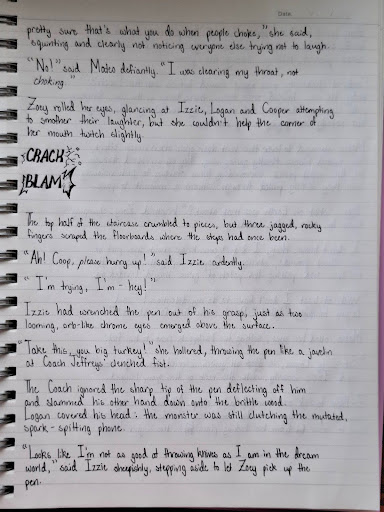 Date
pretty sure that's what you do when people choke," she said,
squinting and clearly not noticing everyone else trying not to laugh.
"No!" said Mateo defiantly. "I was clearing my throat, not
choking."
Zoey rolled her eyes, glancing at Izzie, Logan and Cooper attempting
to smother their laughter, but she couldn't help the corner of
her mouth twitch slightly.
CRACK
BLAM
The top half of the staircase crumbled to pieces, but three jagged, rocky
fingers scraped the floorboards where the steps had once been.
"Ah! Coop, please hurry up!" said Izzie ardently.
"I'm trying, I'm - hey!"
Izzie had wrenched the pen out of his grasp, just as two
looming, orb-like chrome eyes emerged above the surface.
"Take this, you big turkey!" she hollered, throwing the pen like a javelin
at Coach Jeffreys' clenched fist.
The Coach ignored the sharp tip of the pen deflecting off him
and slammed his other hand down onto the brittle wood.
Logan covered his head: the monster was still clutching the mutated,
spark-spitting phone.
"Looks like I'm not as good at throwing knives as I am in the dream
world," said Izzie sheepishly, stepping aside to let Zoey pick up the
pen.